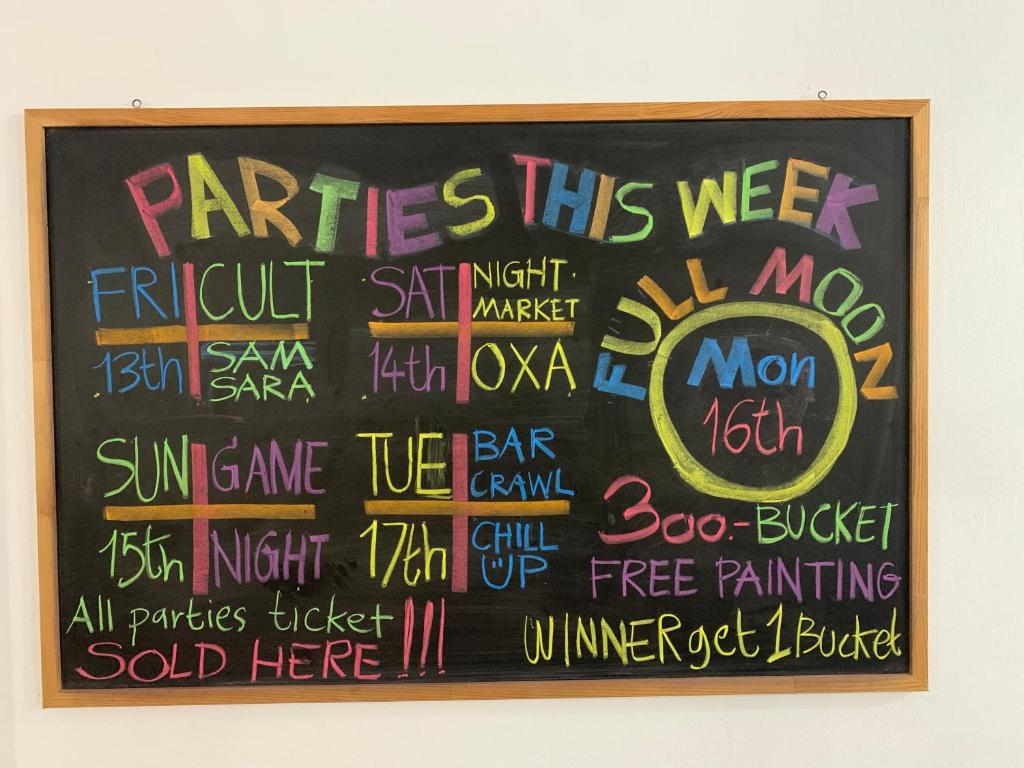 PARTIES THIS WEEK
FRI
13th
CULT
SAM
SARA
SAT
14th
NIGHT
MARKET
OXA
FULL MOON
Mon
16th
SUN
15th
GAME
NIGHT
TUE
17th
BAR
CRAWL
CHILL
UP
300.- BUCKET
FREE PAINTING
WINNER get 1 Bucket
All parties ticket
SOLD HERE !!!